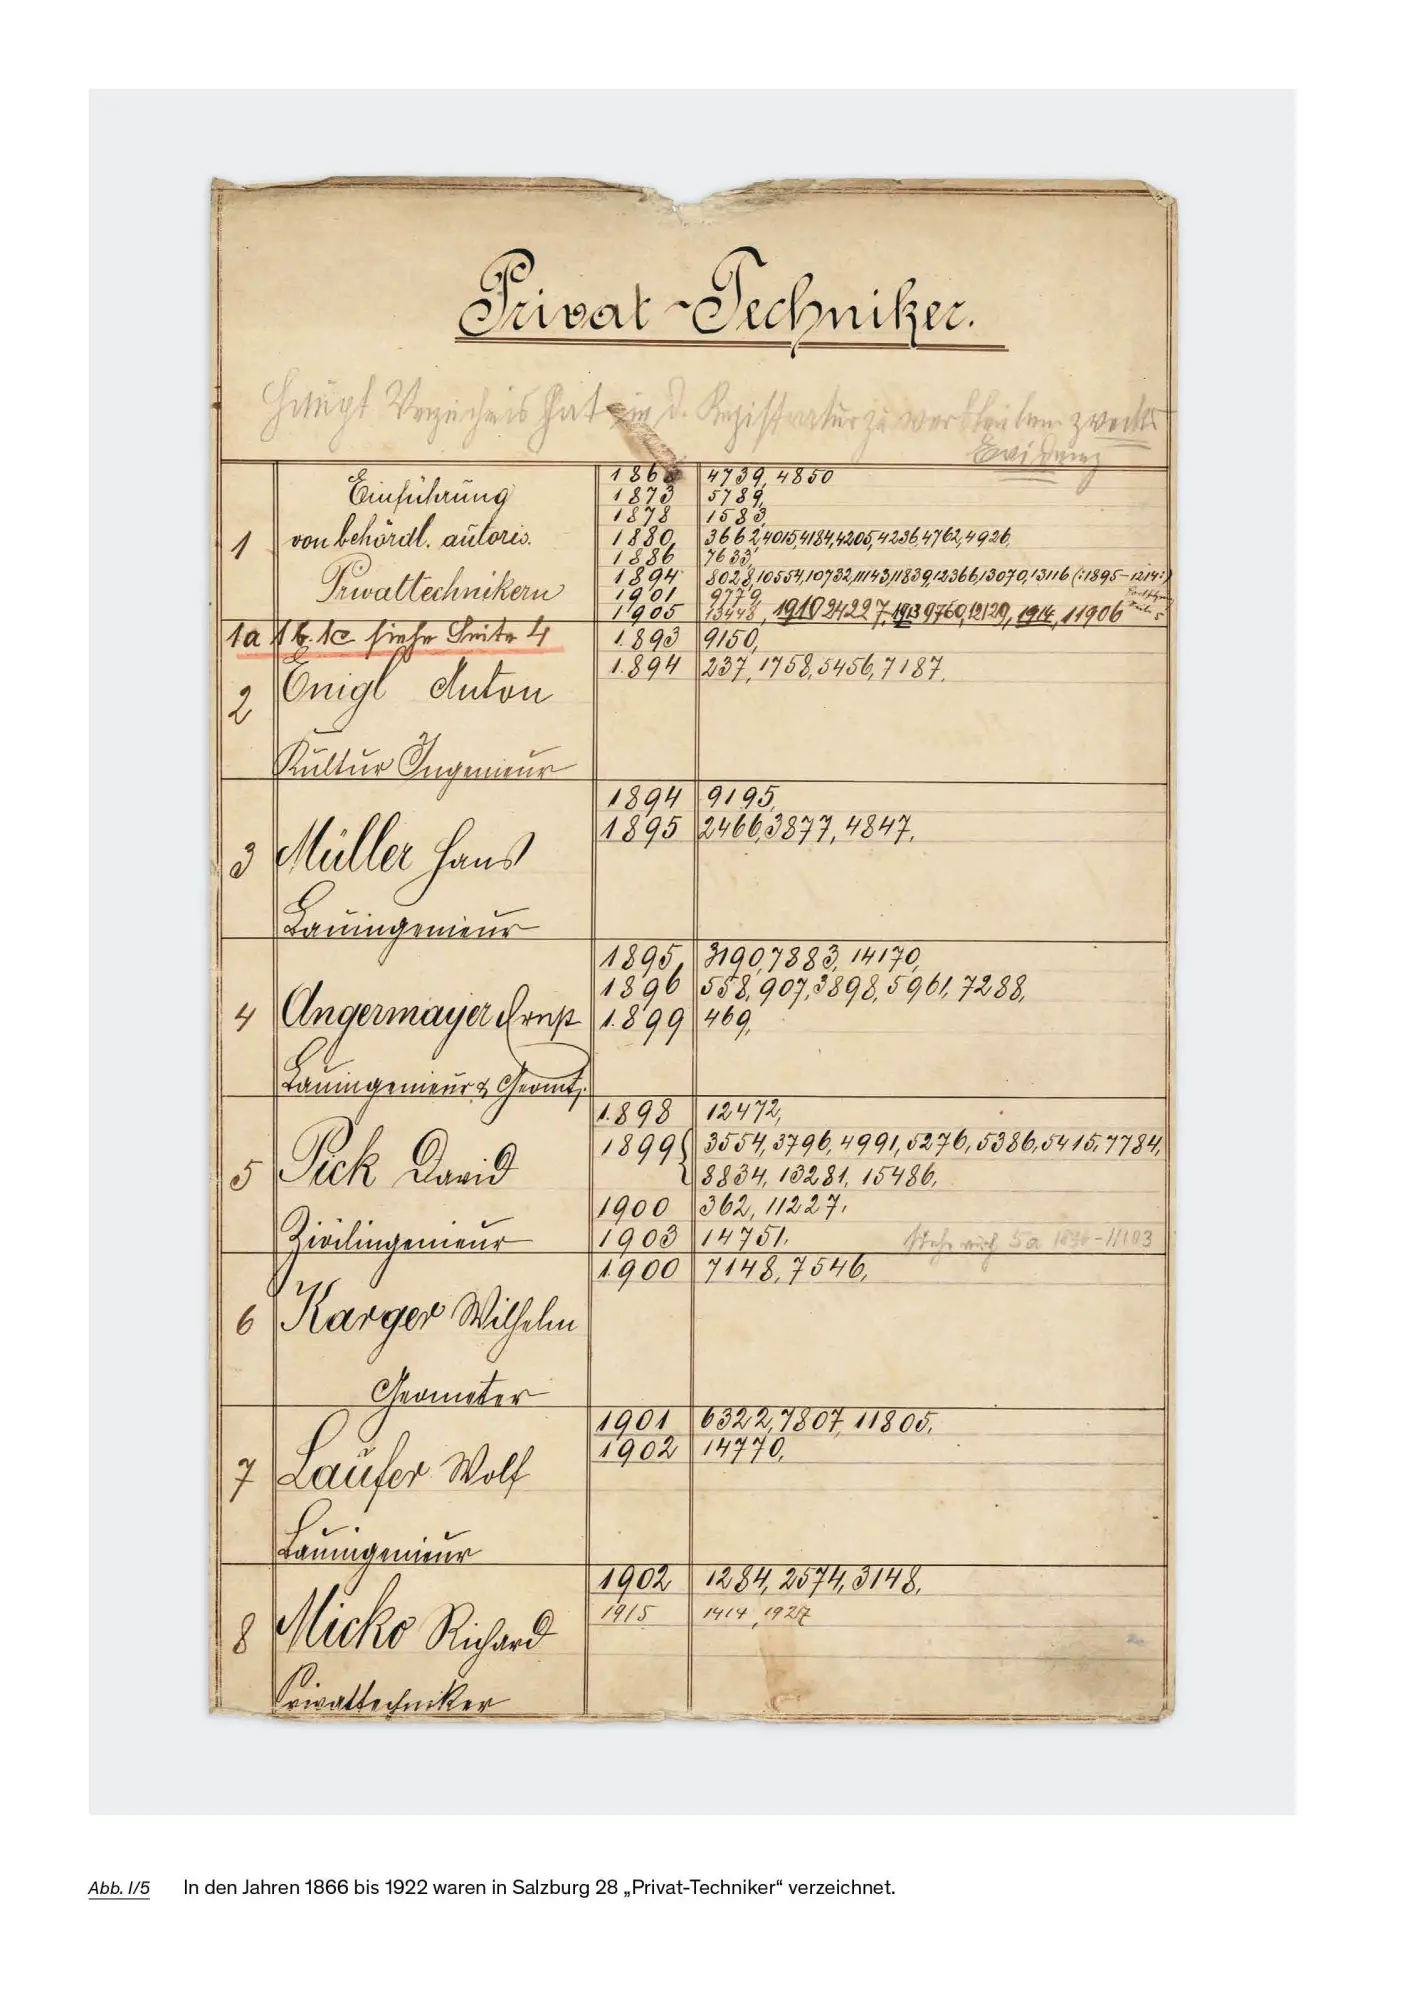 Privat-Techniker.
Haupt Verzeichnis hat in d. Registratur zu verbleiben zwecks
Evidenz
1 Einführung von behördl. autoris. Privattechnikern
186 4739, 4850
1873 5789,
1878 1583,
1880, 3662, 4015, 4184, 4205, 4236, 4762, 4926,
1886 7633,
1894 8028, 10554, 10732, 11143, 11839, 12366, 13070, 13116 (:1895–1214:)
1901 9779,
1905 13448, 1910 24227, 1913 9760, 12129, 1914, 11906
1a 1b. 1c siehe Seite 4
2 Enigl Anton
Kultur Ingenieur
1893 9150,
1894 237, 1758, 5456, 7187,
3 Müller Hans
Bauingenieur
1894 9195,
1895 2466, 3877, 4847,
4 Angermayer Ernst
Bauingenieur & Geomt.
1895, 3190, 7883, 14170,
1896 558, 907, 3898, 5961, 7288,
1899 469,
5 Pick David
Zivilingenieur
1898 12472,
1899 { 3554, 3796, 4991, 5276, 5386, 5415, 7784,
8834, 13281, 15486,
1900 362, 11227,
1903 14751. siehe auch 5a 1896–11103
6 Karger Wilhelm
Geometer
1900 7148, 7546,
7 Laufer Wolf
Bauingenieur
1901 6322, 7807, 11805,
1902 14770,
8 Micko Richard
Privattechniker
1902 1284, 2574, 3148,
1915 1414, 1927
Abb. I/5 In den Jahren 1866 bis 1922 waren in Salzburg 28 „Privat-Techniker“ verzeichnet.